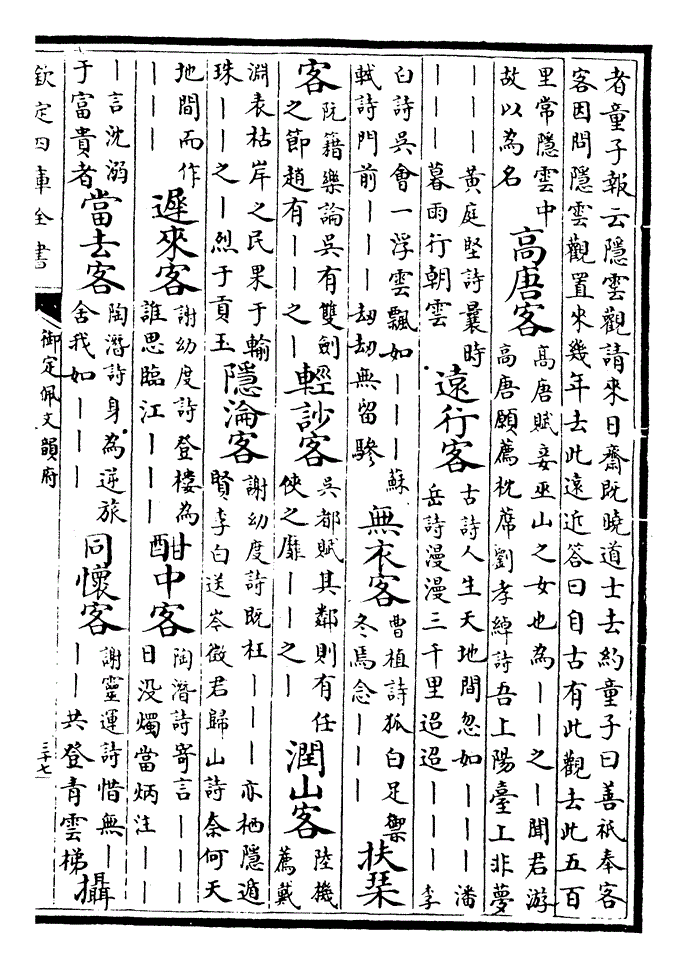 者童子報云隱雲觀請來日齋既曉道士去約童子曰善祇奉客
客因問隱雲觀置來幾年去此遠近答曰自古有此觀去此五百
里常隱雲中
故以為名
高唐客
高唐賦妾巫山之女也為丨丨之丨聞君游
高唐願薦枕蓆劉孝綽詩吾上陽臺上非夢
丨丨丨黃庭堅詩曩時
丨丨丨暮雨行朝雲
遠行客
古詩人生天地間忽如丨丨丨潘
岳詩漫漫三千里迢迢丨丨丨李
白詩吳會一浮雲飄如丨丨丨蘇
軾詩門前丨丨丨劫劫無留驂
無衣客
曹植詩狐白足禦
冬焉念丨丨丨
扶桒
客
阮籍樂論吳有雙劍
之節趙有丨丨之丨
輕訬客
吳都賦其鄰則有任
俠之靡丨丨之丨
潤山客
陸機
薦戴
淵表枯岸之民果于輸
珠丨丨之丨烈于貢玉
隱淪客
謝幼度詩既枉丨丨丨亦栖隱遁
賢李白送岑徵君歸山詩奈何天
地間而作
丨丨丨
遲來客
謝幼度詩登樓為
誰思臨江丨丨丨
酣中客
陶潛詩寄言丨丨丨
日没燭當炳注丨丨
丨言沈溺
于富貴者
當去客
陶潛詩身為逆旅
舍我如丨丨丨
同懷客
謝靈運詩惜無丨
丨丨共登青雲梯
攝
欽定四庫全書
御定佩文韻府
三十七